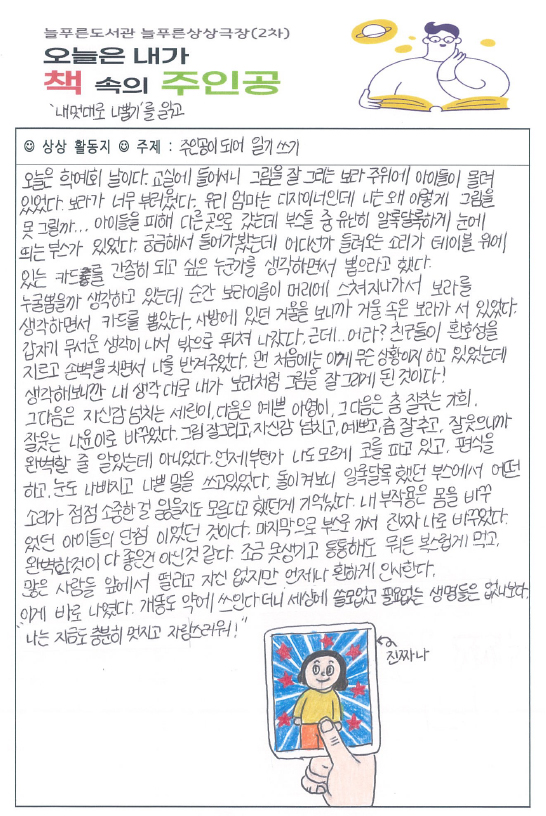 늘푸른도서관 늘푸른상상극장(2차)
오늘은 내가
책 속의 주인공
'내멋대로 나뽑기'를 읽고
☺ 상상 활동지 ☺ 주제 : 주인공이 되어 일기 쓰기
오늘은 학예회 날이다. 교실에 들어서니 그림을 잘 그리는 보라 주위에 아이들이 몰려
있었다. 보라가 너무 부러웠다. 우리 엄마는 디자이너인데 나는 왜 이렇게 그림을
못 그릴까... 아이들을 피해 다른곳으로 갔는데 부스들 중 유난히 알록달록하게 눈에
띄는 부스가 있었다. 궁금해서 들어가봤는데 어디선가 들려오는 소리가 테이블 위에
있는 카드를 간절히 되고 싶은 누군가를 생각하면서 뽑으라고 했다.
누굴뽑을까 생각하고 있는데 순간 보라이름이 머리에 스쳐지나가서 보라를
생각하면서 카드를 뽑았다. 사방에 있던 거울을 보니까 거울 속은 보라가 서 있었다.
갑자기 무서운 생각이 나서 밖으로 뛰쳐 나갔다. 근데...어라? 친구들이 환호성을
지르고 손뼉을 치면서 나를 반겨주었다. 맨 처음에는 이게 무슨 상황이지 하고 있었는데
생각해보니까 내 생각대로 내가 보라처럼 그림을 잘 그리게 된 것이다!
그다음은 자신감 넘치는 세린이, 다음은 예쁜 아영이, 그다음은 춤 잘추는 가희,
잘웃는 나윤이로 바꾸었다. 그림 잘그리고, 자신감 넘치고, 예쁘고, 춤 잘 추고, 잘웃으니까
완벽할 줄 알았는데 아니었다. 언제부턴가 나도 모르게 코를 파고 있고, 편식을
하고, 눈도 나빠지고 나쁜 말을 쓰고있었다. 돌이켜보니 알록달록 했던 부스에서 어떤
소리가 점점 소중한 걸 잃을지도 모른다고 했던게 기억났다. 내 부작용은 몸을 바꾸
었던 아이들의 단점 이었던 것이다. 마지막으로 부스로 가서 진짜 나로 바꾸었다.
완벽한것이 다 좋은건 아닌것 같다. 조금 못생기고 뚱뚱해도 뭐든 복스럽게 먹고,
많은 사람들 앞에서 떨리고 자신 없지만 언제나 환하게 인사한다.
이게 바로 나였다. 개똥도 약에 쓰인다더니 세상에 쓸모없고 필요없는 생명들은 없나보다.
"나는 지금도 충분히 멋지고 자랑스러워!"
진짜 나